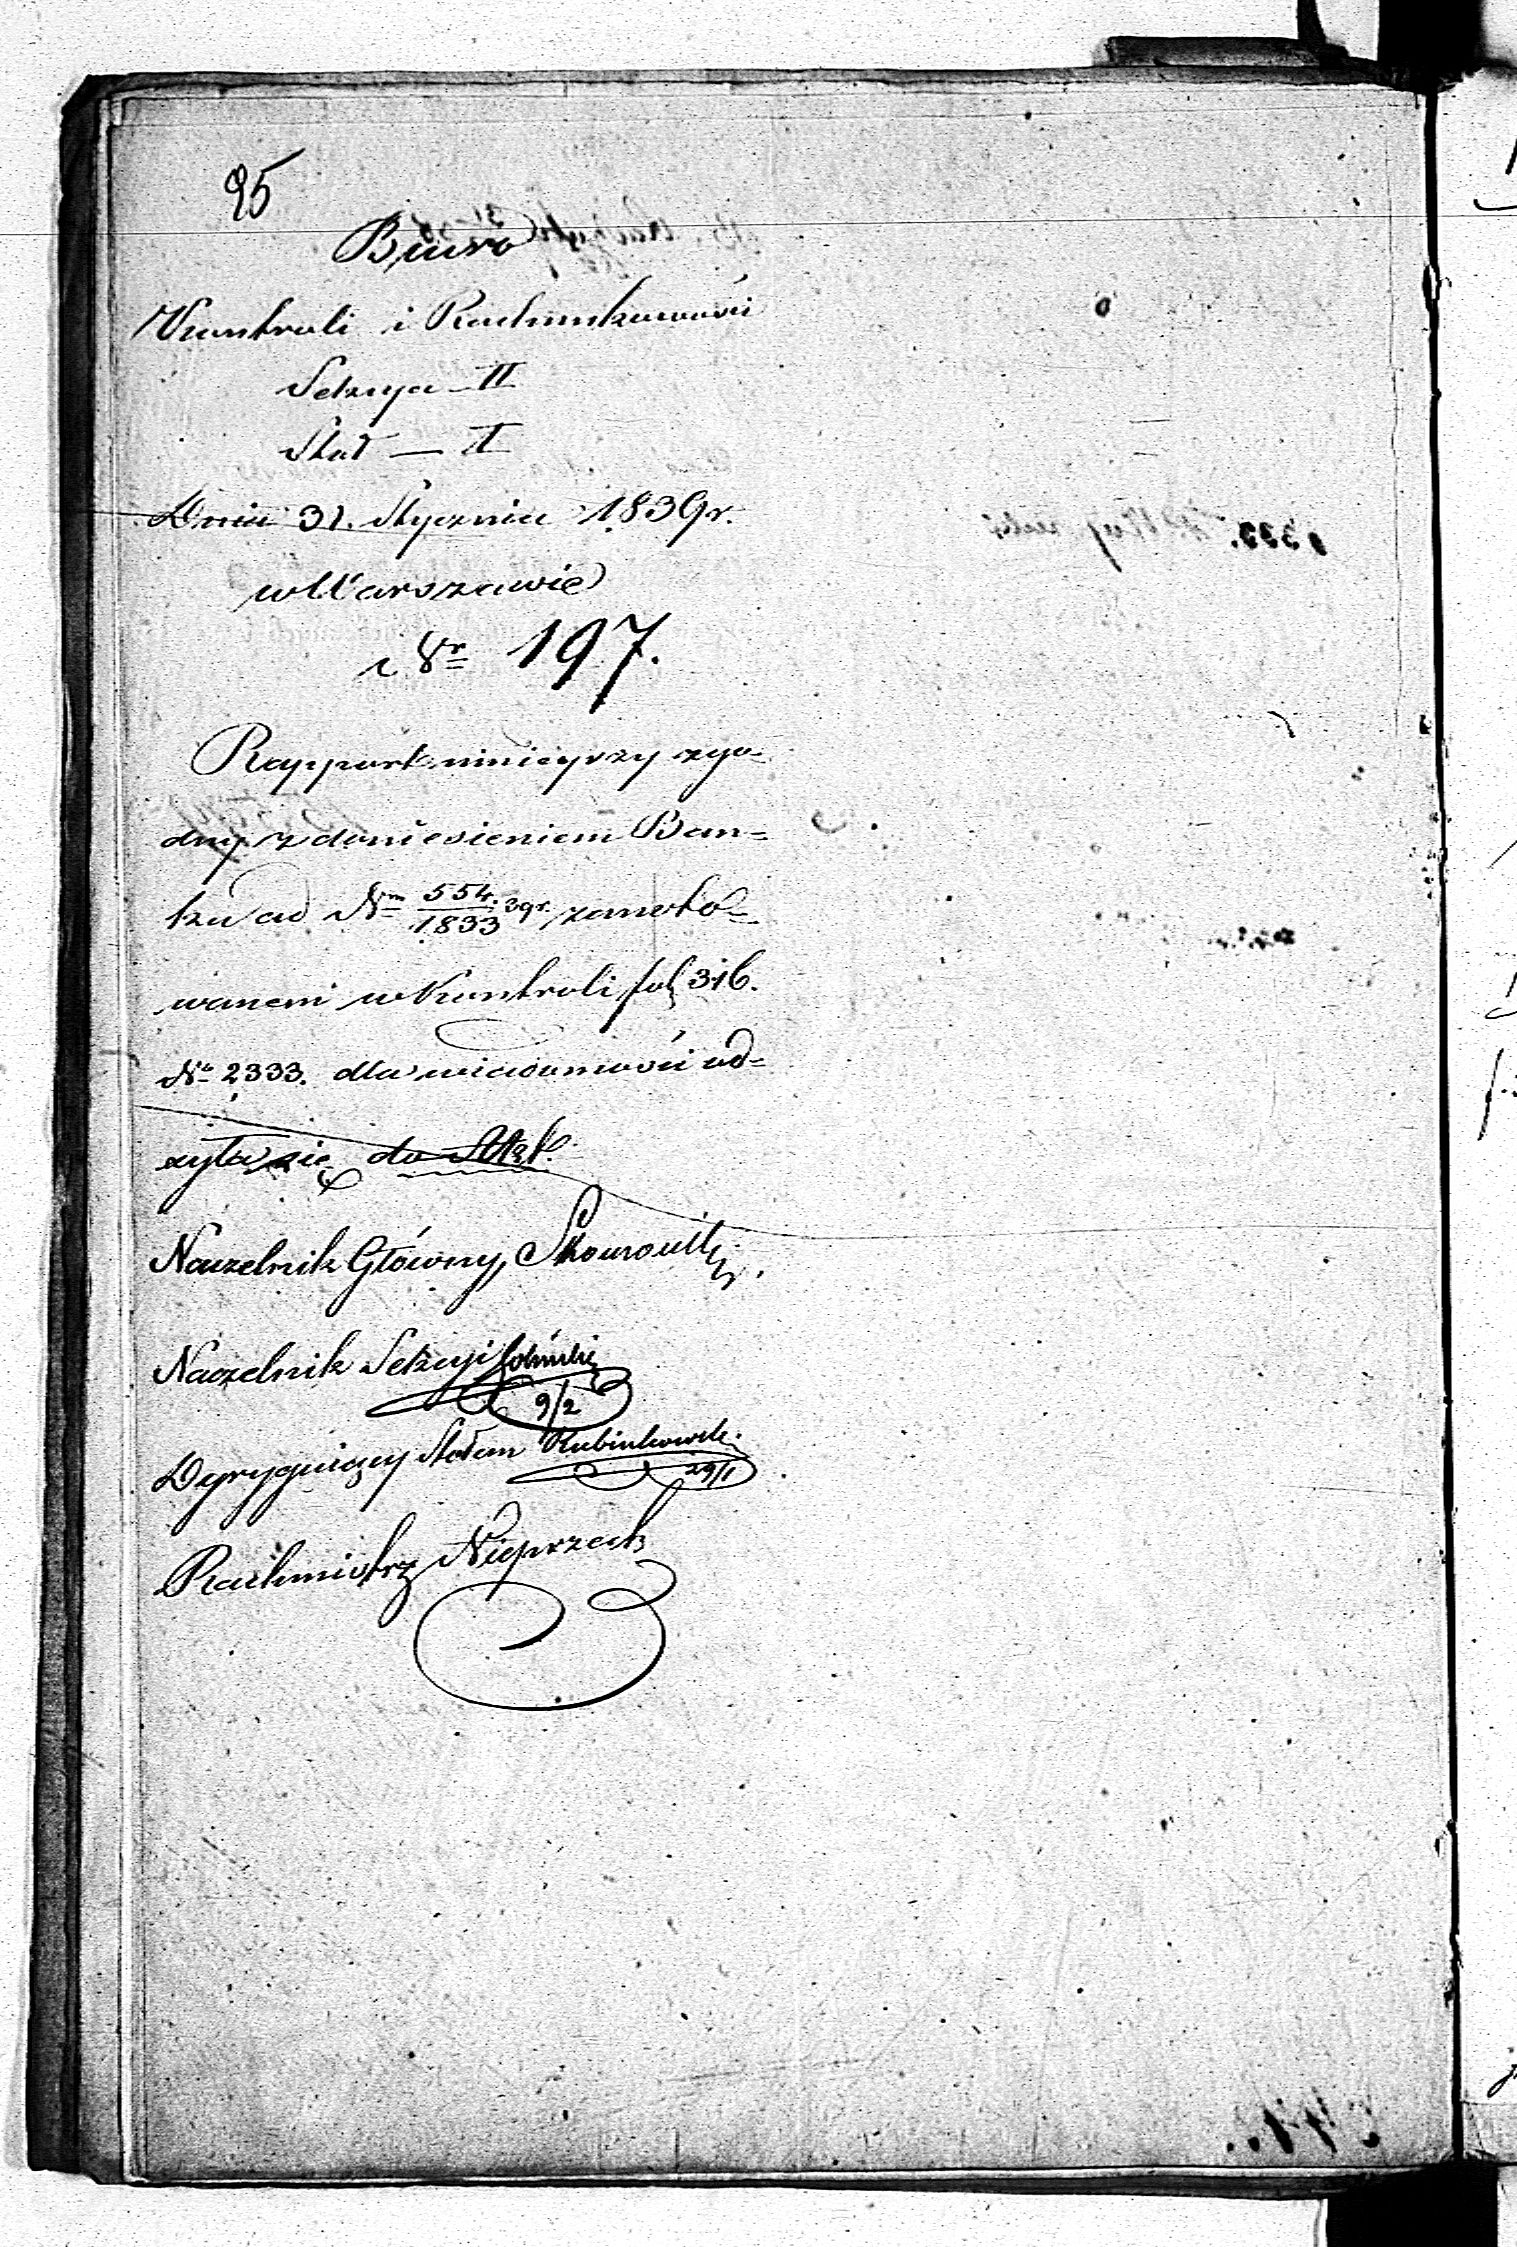 95
Biuro
Kontroli i Rachunkowości
Sekcya - II
Stół — I
Dnia 31. Stycznia 1839 r.
w Warszawie
Nr 197.
Rapport niniejszy zgo=
dny z doniesieniem Ban=
ku ad Nm 554./1833 39r. zanoto=
wanem w Kontroli fol 316.
No 2333. dla wiadomości od=
syła się do
Naczelnik Główny,
Naczelnik Sekcyi
9/2
Dyrygujący Stołem Rubinkowski.
29/1
Rachmistrz Nieprzecki